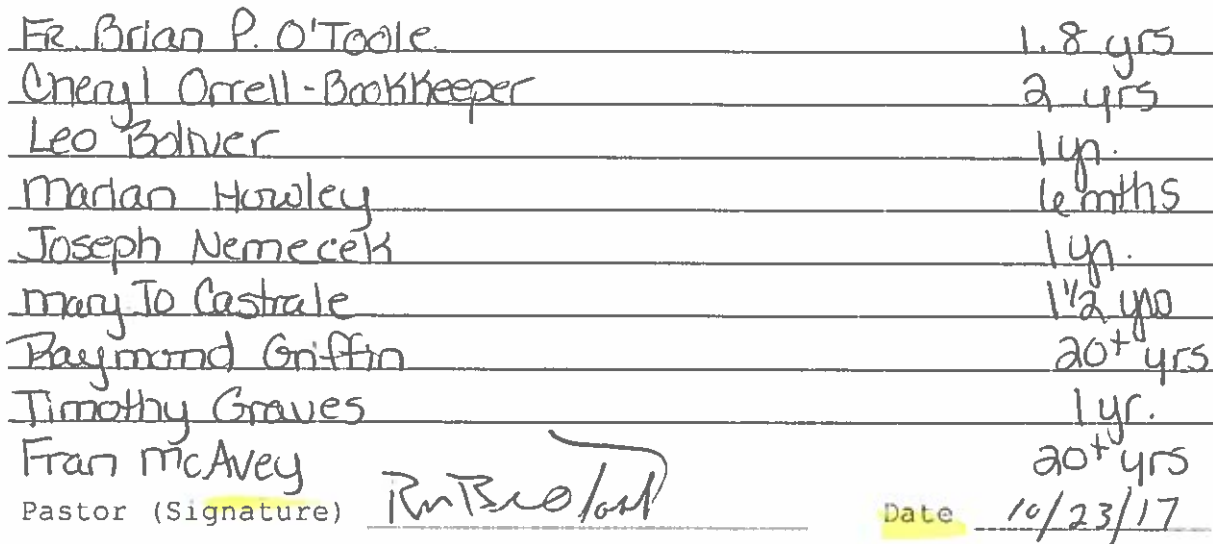 FR. Brian P. O'Toole 1.8 yrs
Cheryl Orrell - Bookkeeper 2 yrs
Leo Boliver 1 yr.
Marian Howley 6 mths
Joseph Nemecek 1 yr.
Mary Jo Castrale 1 1/2 yrs
Raymond Griffin 20+ yrs
Timothy Graves 1 yr.
Fran McAvey 20+ yrs
Pastor (Signature) Date 10/23/17